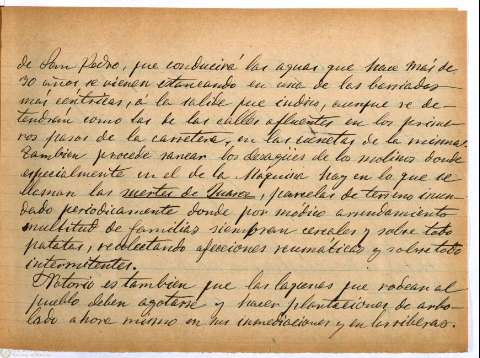 de San Pedro, que conducirá las aguas que hace más de
30 años se vienen estancando en una de las barriadas
más céntricas, á la salida que indico, aunque se de-
tendrán como las de las calles afluentes en los prime-
ros pasos de la carretera, en las cunetas de la misma.
Tambien procede sanear los desagües de los molinos donde
especialmente en el de la Maquina hay en lo que se
llaman las suertes de Suarez, parcelas de terreno inun-
dado periodicamente donde por módico arrendamiento
multitud de familias siembran cereales y sobre todo
patatas, recolectando afecciones reumáticas y sobre todo
intermitentes.
Notorio es tambien que las lagunas que rodean al
pueblo deben agotarse y hacer plantaciones de arbo-
lado ahora mismo en sus inmediaciones y en las riberas.